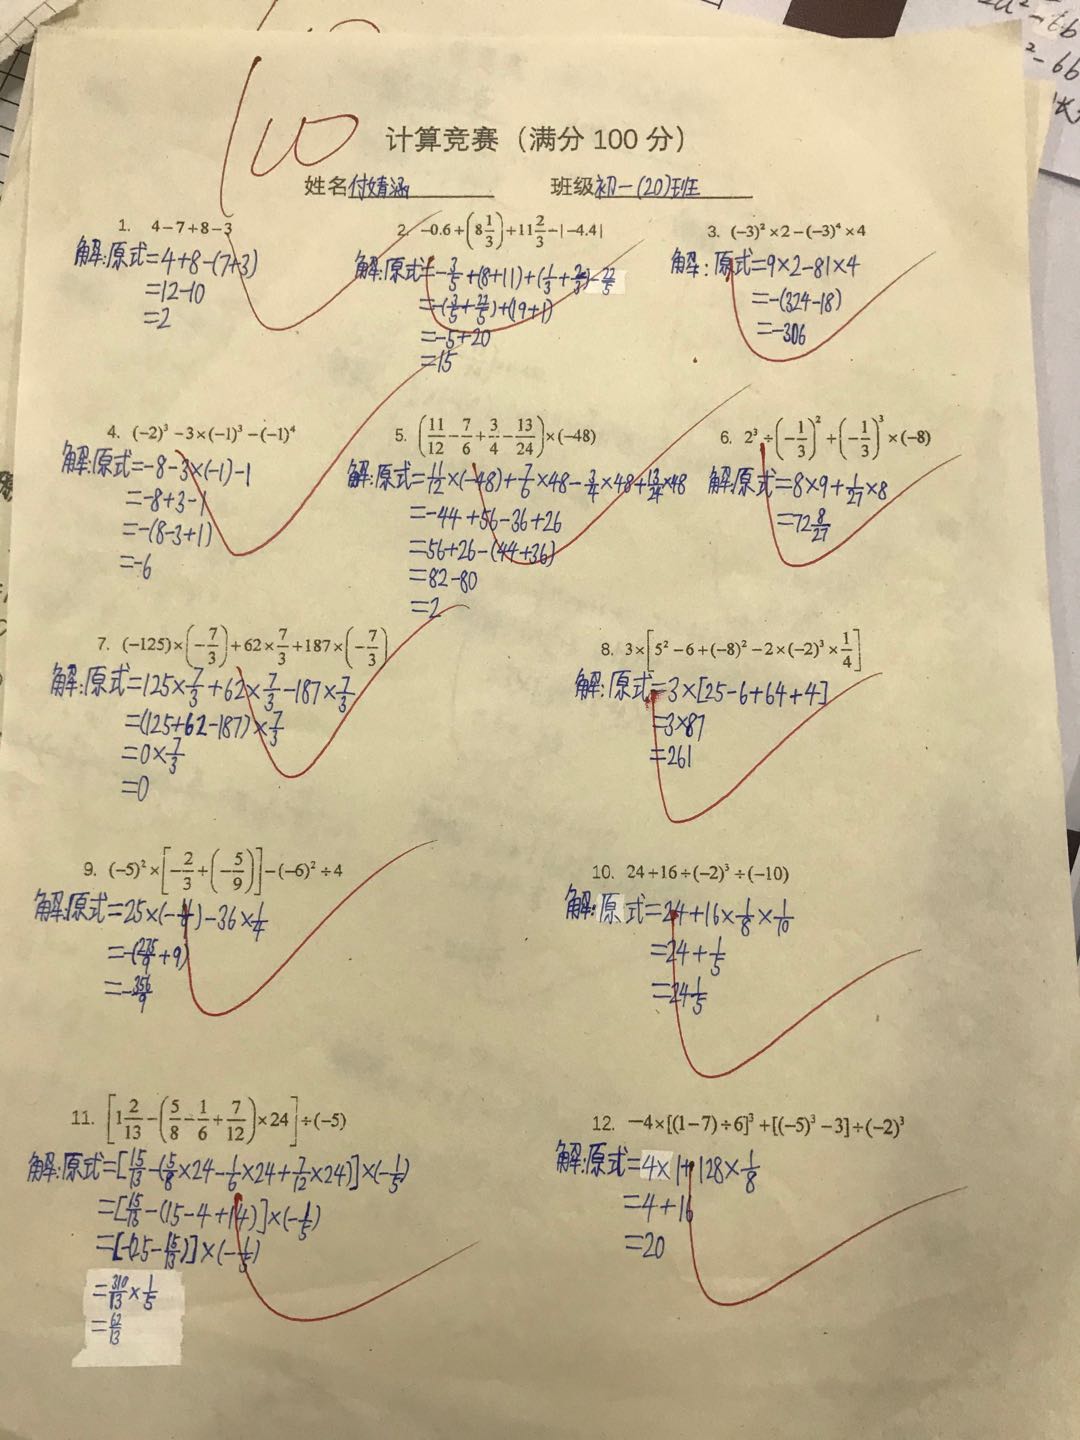 100
计算竞赛（满分 100 分）
姓名付婧涵 班级初一(20)班
1. 4－7＋8－3
解:原式=4+8-(7+3)
=12-10
=2
2. -0.6+(8 1/3)+11 2/3-|-4.4|
解:原式=-3/5+(8+11)+(1/3+2/3)-22/5
=-(3/5+22/5)+(19+1)
=-5+20
=15
3. (-3)²×2-(-3)⁴×4
解:原式=9×2-81×4
=-(324-18)
=-306
4. (-2)³-3×(-1)³-(-1)⁴
解:原式=-8-3×(-1)-1
=-8+3-1
=-(8-3+1)
=-6
5. (11/12-7/6+3/4-13/24)×(-48)
解:原式=11/12×(-48)+7/6×48-3/4×48+13/24×48
=-44+56-36+26
=56+26-(44+36)
=82-80
=2
6. 2³÷(-1/3)²+(-1/3)³×(-8)
解:原式=8×9+1/27×8
=72 8/27
7. (-125)×(-7/3)+62×7/3+187×(-7/3)
解:原式=125×7/3+62×7/3-187×7/3
=(125+62-187)×7/3
=0×7/3
=0
8. 3×[5²-6+(-8)²-2×(-2)³×1/4]
解:原式=3×[25-6+64+4]
=3×87
=261
9. (-5)²×[-2/3+(-5/9)]-(-6)²÷4
解:原式=25×(-11/9)-36×1/4
=-(275/9+9)
=-356/9
10. 24+16÷(-2)³÷(-10)
解:原式=24+16×1/8×1/10
=24+1/5
=24 1/5
11. [1 2/13-(5/8-1/6+7/12)×24]÷(-5)
解:原式=[15/13-(5/8×24-1/6×24+7/12×24)]×(-1/5)
=[15/13-(15-4+14)]×(-1/5)
=[-(25-15/13)]×(-1/5)
=310/13×1/5
=62/13
12. -4×[(1-7)÷6]³+[(-5)³-3]÷(-2)³
解:原式=4×1+128×1/8
=4+16
=20